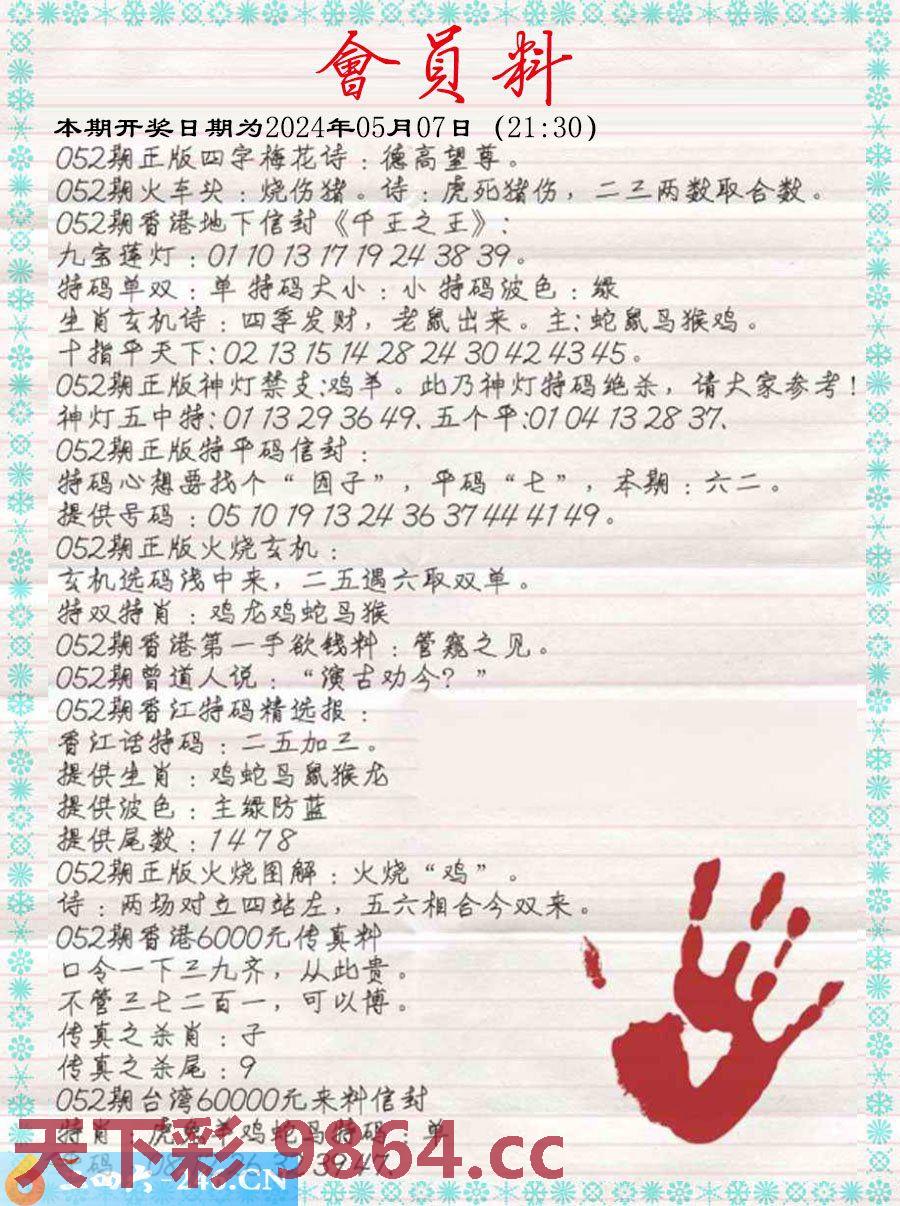 會員料
本期开奖日期为2024年05月07日 (21:30)
052期正版四字梅花诗：德高望尊。
052期火车头：烧伤猪。诗：虎死猪伤，二三两数取合数。
052期香港地下信封《千王之王》：
九宝莲灯：01 10 13 17 19 24 38 39。
特码单双：单 特码大小：小 特码波色：绿
生肖玄机诗：四季发财，老鼠出来。主：蛇鼠马猴鸡。
十指平天下：02 13 15 14 28 24 30 42 43 45。
052期正版神灯禁支：鸡羊。此乃神灯特码绝杀，请大家参考！
神灯五中特：01 13 29 36 49. 五个平：01 04 13 28 37.
052期正版特平码信封：
特码心想要找个“因子”，平码“七”，本期：六二。
提供号码：05 10 19 13 24 36 37 44 41 49。
052期正版火烧玄机：
玄机选码浅中来，二五遇六取双单。
特双特肖：鸡龙鸡蛇马猴
052期香港第一手欲钱料：管窥之见。
052期曾道人说：“演古劝今？”
052期香江特码精选报：
香江话特码：二五加三。
提供生肖：鸡蛇马鼠猴龙
提供波色：主绿防蓝
提供尾数：1 4 7 8
052期正版火烧图解：火烧“鸡”。
诗：两场对立四站左，五六相合今双来。
052期香港6000元传真料
口令一下三九齐，从此贵。
不管三七二百一，可以博。
传真之杀肖：子
传真之杀尾：9
052期台湾60000元来料信封
特肖：虎兔羊鸡蛇马特码：单
39 47.
天下彩 9864.cc
246.CN